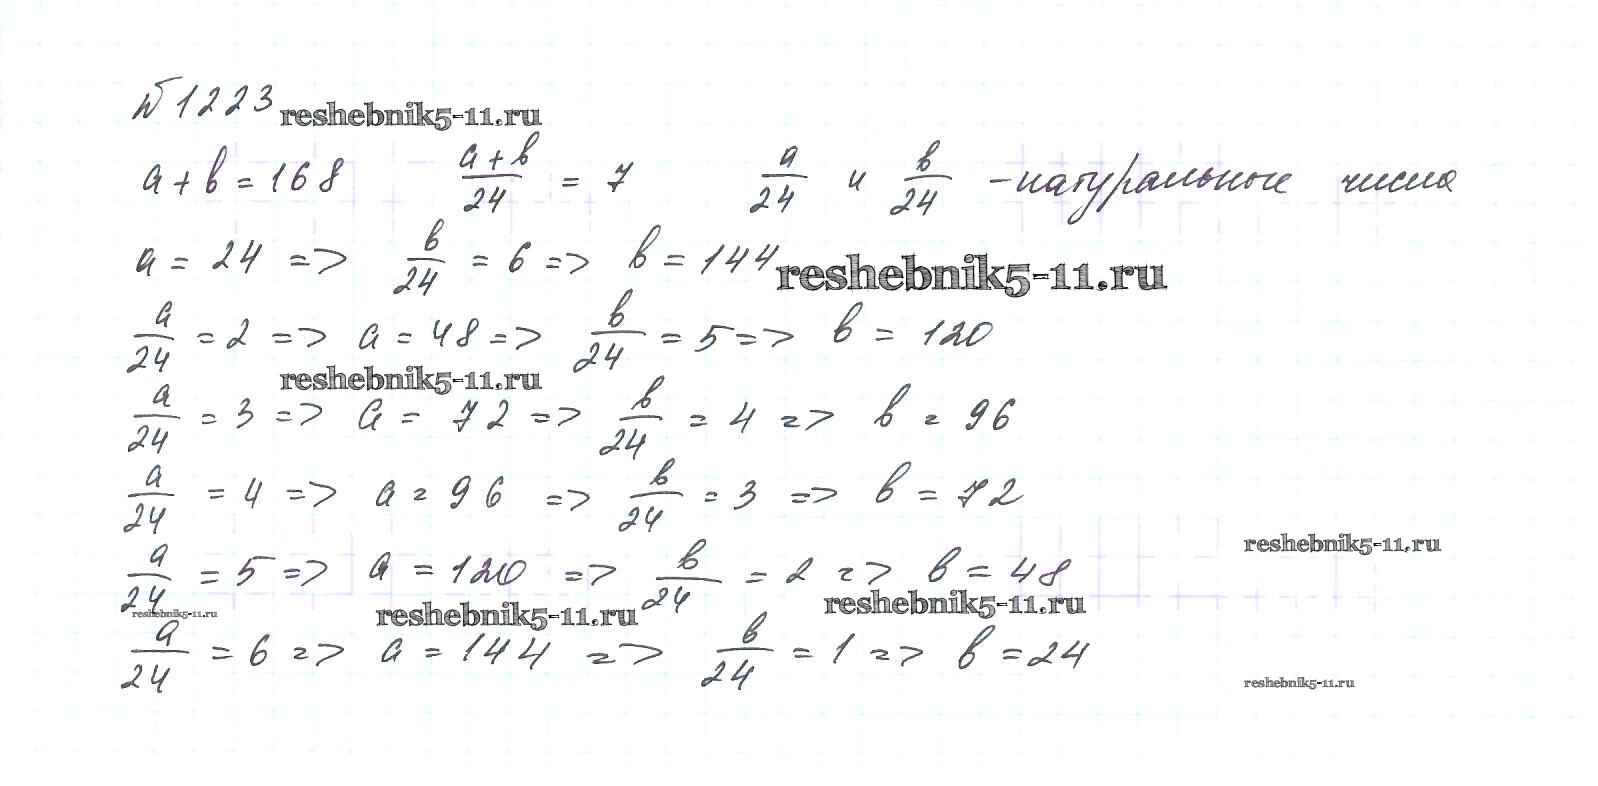 №1223 reshebnik5-11.ru
a + b = 168 (a + b)/24 = 7 a/24 и b/24 - натуральные числа
a = 24 => b/24 = 6 => b = 144 reshebnik5-11.ru
a/24 = 2 => a = 48 => b/24 = 5 => b = 120
reshebnik5-11.ru
a/24 = 3 => a = 72 => b/24 = 4 => b = 96
a/24 = 4 => a = 96 => b/24 = 3 => b = 72
reshebnik5-11.ru
a/24 = 5 => a = 120 => b/24 = 2 => b = 48
reshebnik5-11.ru reshebnik5-11.ru reshebnik5-11.ru
a/24 = 6 => a = 144 => b/24 = 1 => b = 24
reshebnik5-11.ru